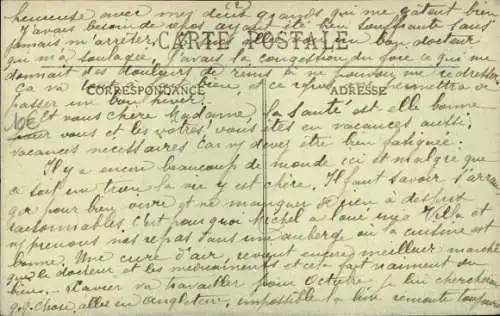 heureuse avec mes deux grands qui me gâtent bien
J'avais besoin de repos ayant été bien souffrante sans
jamais m'arrêter. un bon docteur
CARTE POSTALE
qui m'a soulagée. J'avais la congestion du foie ce qui me
donnait des douleurs de reins à ne pouvoir me redresser
Ça va bien et ce repos permettra de
CORRESPONDANCE
ADRESSE
passer un bon hiver.
Et vous chère Madame, la santé est elle bonne
pour vous et les vôtres, vous êtes en vacances aussi,
vacances nécessaires car vous devez être bien fatiguée.
Il y a encore beaucoup de monde ici et malgré que
ce soit un trou la vie y est chère. Il faut savoir s'arran
ger pour bien vivre et ne manquer de rien à des prix
raisonnables. C'est pourquoi Michel a loué une Villa et
n/prenons nos repas dans une auberge où la cuisine est
bonne. Une cure d'air, revient encore meilleur marché
que le docteur et les médicaments et cela fait vraiment du
bien. Xavier va travailler pour Octobre je lui chercherai
q.q. chose, aller en Angleterre, impossible la livre remonte toujours